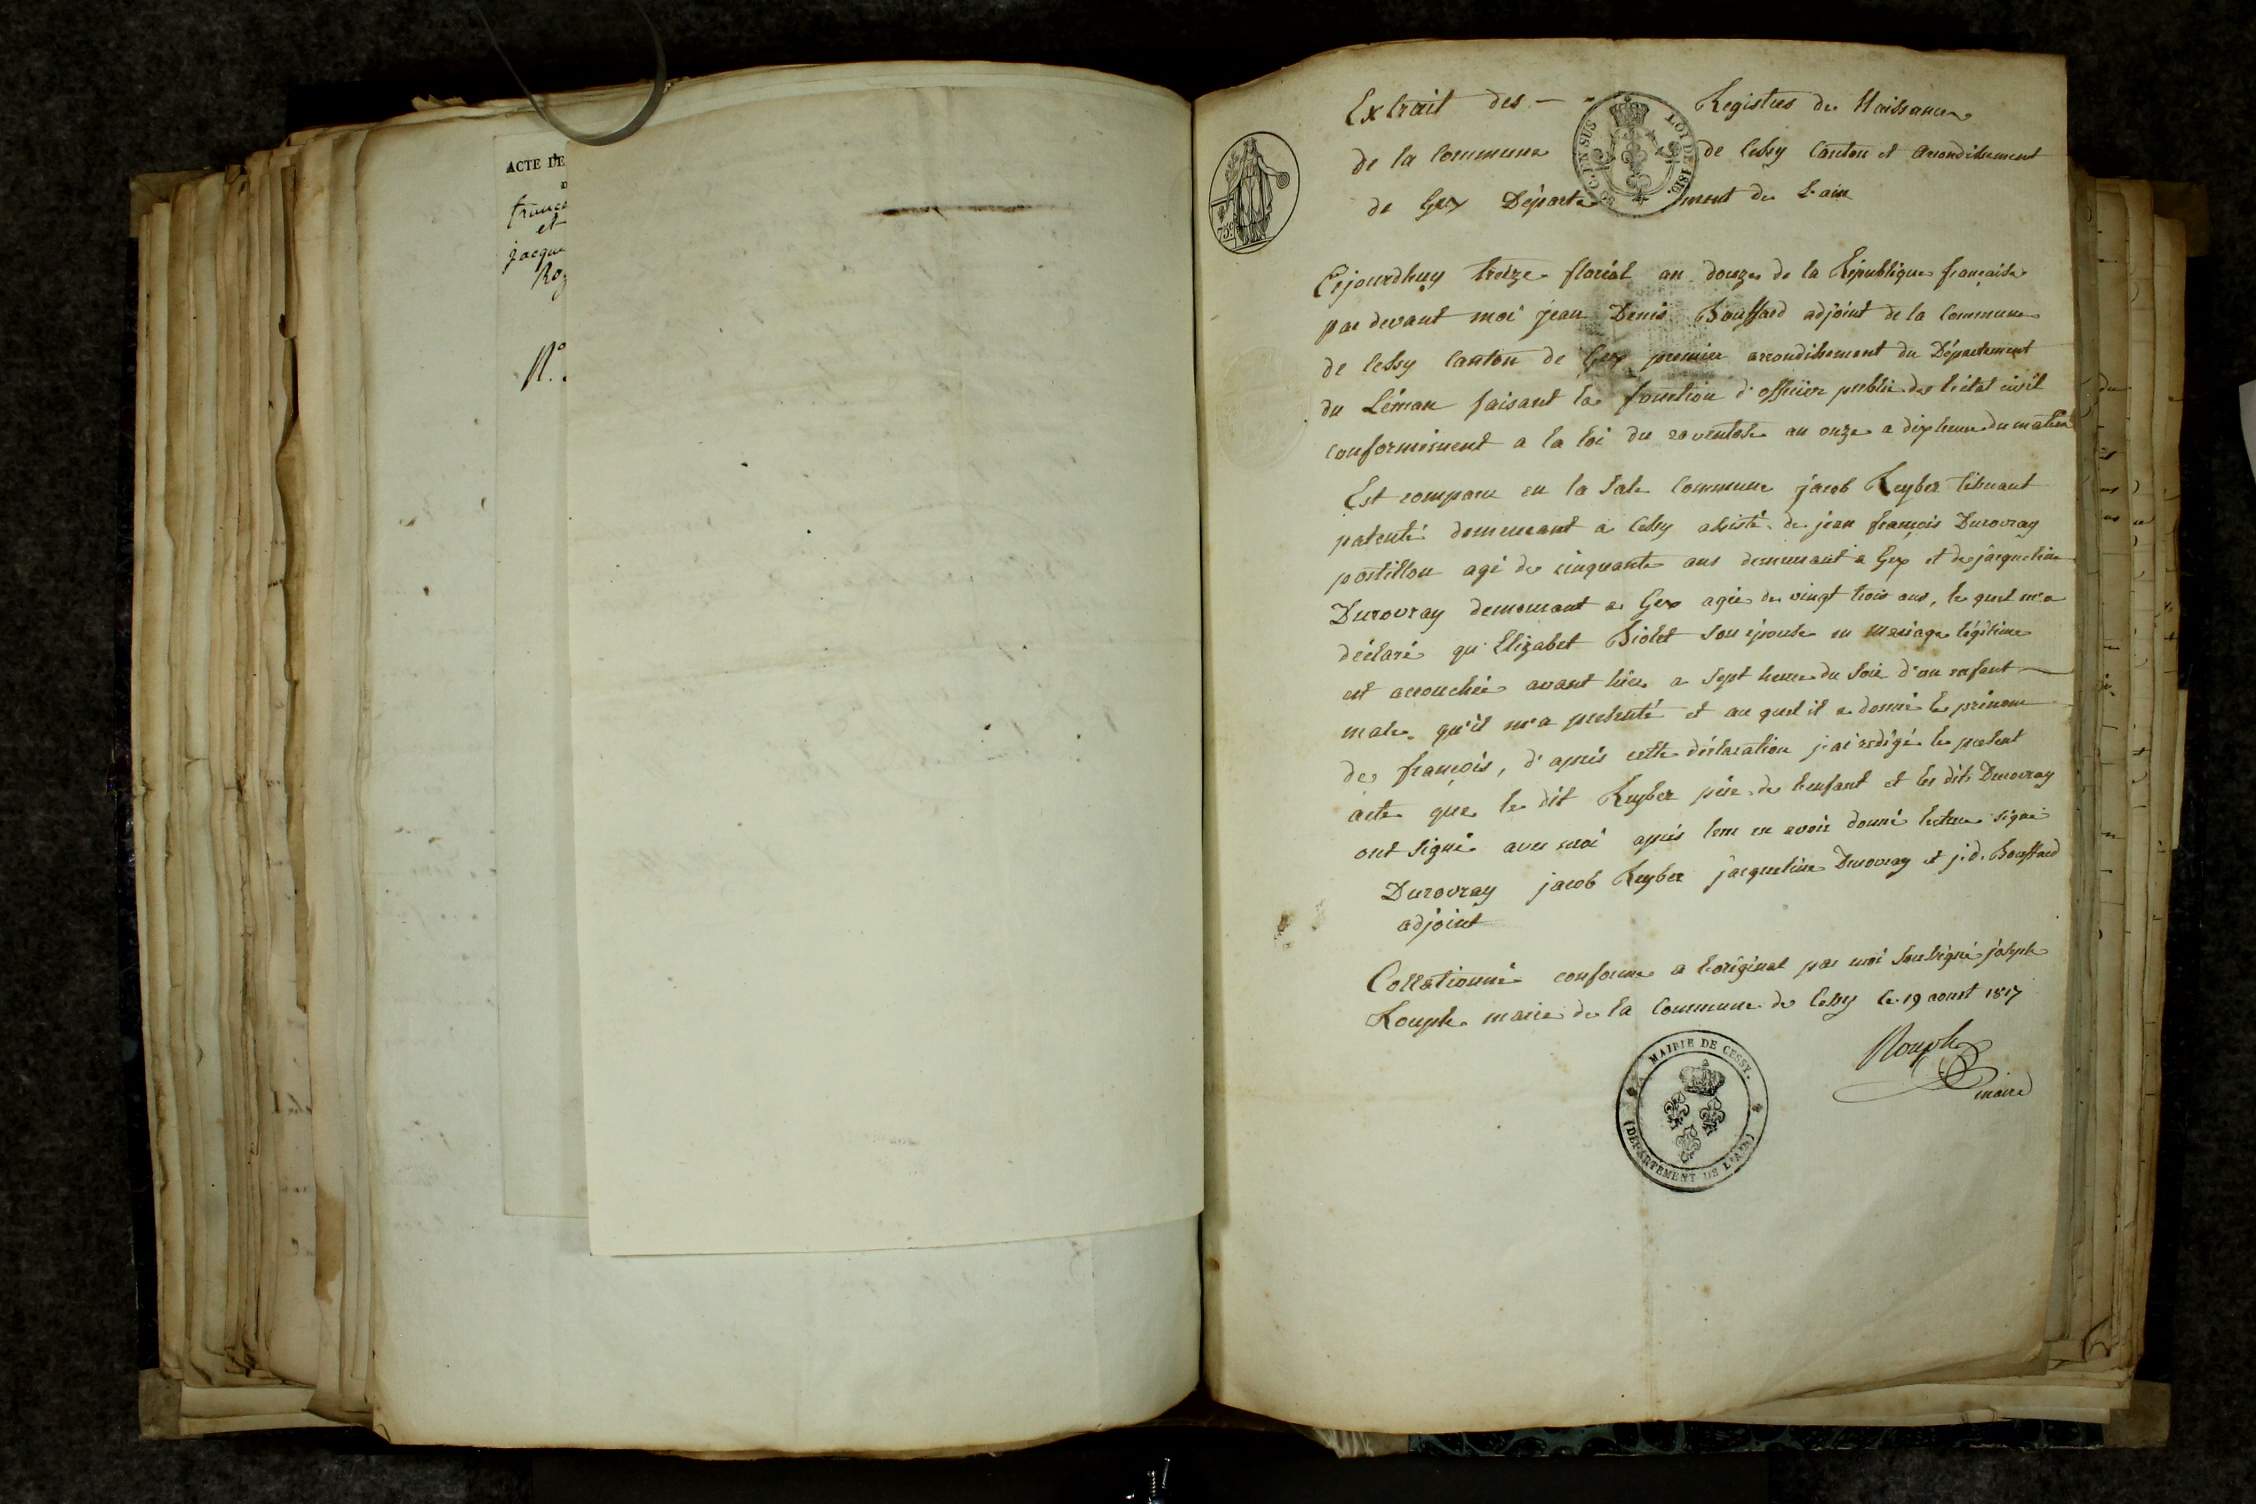 ACTE DE
et
N.°
Extrait des — Registres de Naissances
de la Commune de Cessy Canton et arrondissement
de Gex Département de L'ain
LOI DE 1816.
EN SUS
739
Cejourdhuy treize floréal an douze de la République française
par devant moi jean Denis Bouffard adjoint de la Commune
de Cessy Canton de Gex premier arrondissement du Département
du Léman faisant la fonction d'officier public de l'état civil
conformément a la loi du 20 ventose an onze a dix heure du matin
Est comparu en la Sale Commune jacob Keyber
patenté demeurant à Cessy assisté de jean françois Durovray
postillon agé de cinquante ans demeurant a Gex et de jacqueline
Durovray demeurant a Gex agée de vingt trois ans, le quel m'a
déclaré qu'Elizabet Biolet son épouse en mariage légitime
est accouchée avant hier a sept heure du soir d'un enfant —
male qu'il m'a presenté et au quel il a donné le prénom
de françois, d'après cette déclaration j'ai redigé le present
acte que le dit Keyber père de l'enfant et les dits Durovray
ont signé avec moi après leur en avoir donné lecture signé
Durovray jacob Keyber jacqueline Durovray et j. d. Bouffard
adjoint
Collationné conforme a l'original par moi Soussigné joseph
Rouph maire de la Commune de Cessy le 19 aoust 1817
Rouph
maire
MAIRIE DE CESSY.
(DÉPARTEMENT DE L'AIN)